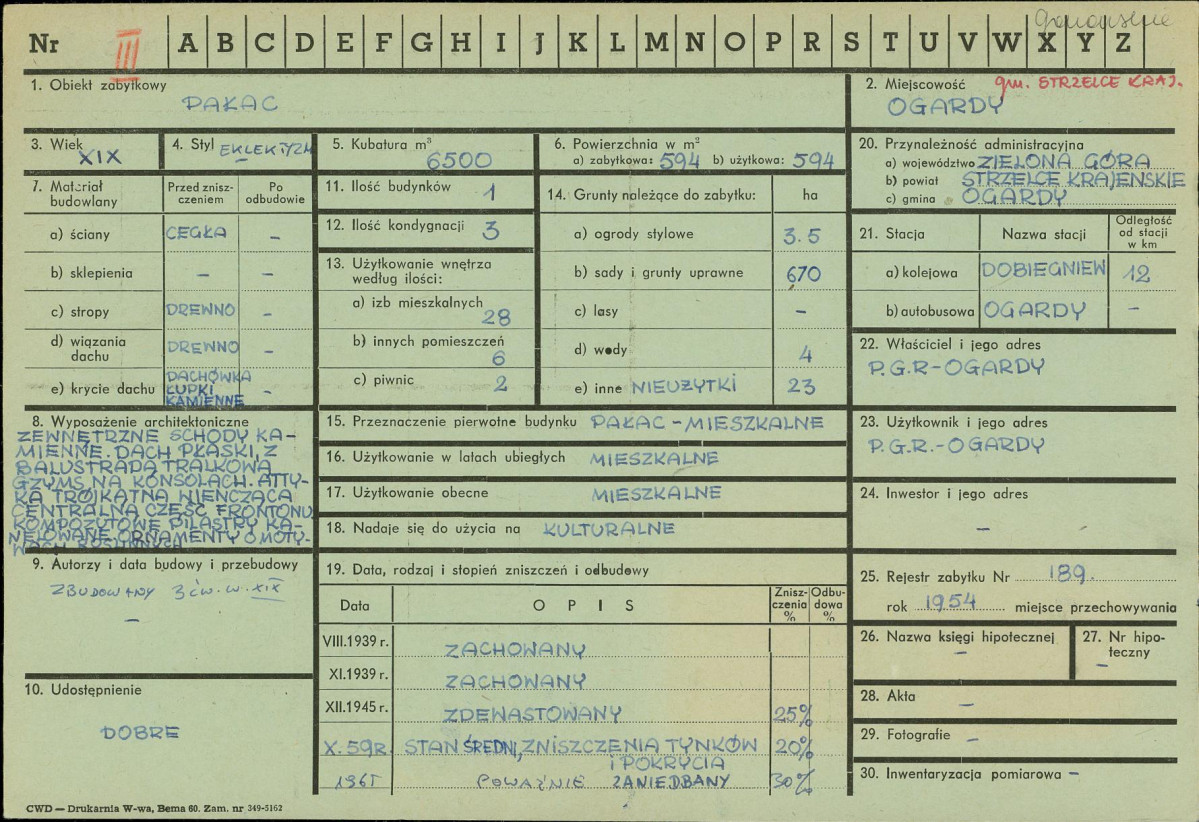 Nr III A B C D E F G H I J K L M N O P R S T U V W X Y Z
1. Obiekt zabytkowy
PAŁAC
2. Miejscowość gm. STRZELCE KRAJ.
OGARDY
3. Wiek
XIX
4. Styl EKLEKTYZM
5. Kubatura m³
6500
6. Powierzchnia w m²
a) zabytkowa: 594 b) użytkowa: 594
20. Przynależność administracyjna
a) województwo ZIELONA GÓRA
b) powiat STRZELCE KRAJEŃSKIE
c) gmina OGARDY
7. Materiał budowlany
Przed zniszczeniem
Po odbudowie
a) ściany CEGŁA –
b) sklepienia – –
c) stropy DREWNO –
d) wiązania dachu DREWNO –
e) krycie dachu DACHÓWKA –
ŁUPKI
KAMIENNE
11. Ilość budynków 1
12. Ilość kondygnacji 3
13. Użytkowanie wnętrza
według ilości:
a) izb mieszkalnych
28
b) innych pomieszczeń
6
c) piwnic 2
14. Grunty należące do zabytku: ha
a) ogrody stylowe 3.5
b) sady i grunty uprawne 670
c) lasy –
d) wody 4
e) inne NIEUŻYTKI 23
21. Stacja
Nazwa stacji
Odległość
od stacji
w km
a) kolejowa DOBIEGNIEW 12
b) autobusowa OGARDY –
22. Właściciel i jego adres
P.G.R-OGARDY
8. Wyposażenie architektoniczne
ZEWNĘTRZNE SCHODY KA-
MIENNE. DACH PŁASKI, Z
BALUSTRADĄ TRALKOWĄ
GZYMS NA KONSOLACH. ATTY-
KA TRÓJKĄTNA WIEŃCZĄCA
CENTRALNĄ CZĘŚĆ FRONTONU
KOMPOZYTOWE PILASTRY KA-
NELOWANE, ORNAMENTY O MOTY-
WACH ROŚLINNYCH
15. Przeznaczenie pierwotne budynku PAŁAC – MIESZKALNE
16. Użytkowanie w latach ubiegłych MIESZKALNE
17. Użytkowanie obecne MIESZKALNE
18. Nadaje się do użycia na KULTURALNE
23. Użytkownik i jego adres
P.G.R.-OGARDY
24. Inwestor i jego adres
–
9. Autorzy i data budowy i przebudowy
ZBUDOWANY 3 ćw. w. XIX
–
10. Udostępnienie
DOBRE
19. Data, rodzaj i stopień zniszczeń i odbudowy
Data
OPIS
Zniszczenia %
Odbudowa %
VIII.1939 r. ZACHOWANY
XI.1939 r. ZACHOWANY
XII.1945 r. ZDEWASTOWANY 25%
X. 59 r. STAN ŚREDNI, ZNISZCZENIA TYNKÓW 20%
i POKRYCIA
1965 POWAŻNIE ZANIEDBANY 30%
25. Rejestr zabytku Nr 189.
rok 1954 miejsce przechowywania
26. Nazwa księgi hipotecznej
–
27. Nr hipo-
teczny
–
28. Akta –
29. Fotografie –
30. Inwentaryzacja pomiarowa –
CWD — Drukarnia W-wa, Bema 60. Zam. nr 349-5162